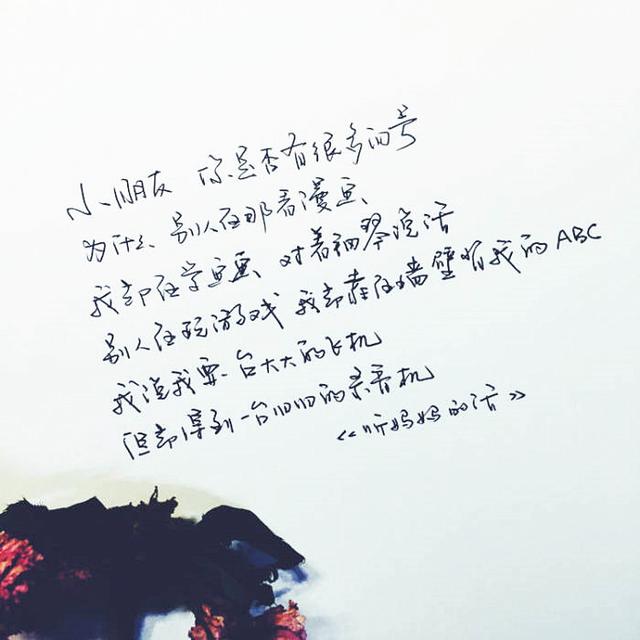 小朋友 你是否有很多问号
为什么 别人在那看漫画
我却在学画画 对着钢琴说话
别人在玩游戏 我却靠在墙壁背我的ABC
我说我要一台大大的飞机
但却得到一台旧旧的录音机
《听妈妈的话》